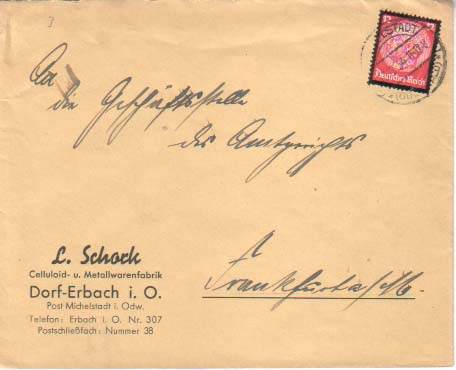 Deutsches Reich
An
die Geschäftsstelle
des Amtsgerichts
Frankfurt a/M.
L. Schork
Celluloid- u. Metallwarenfabrik
Dorf-Erbach i. O.
Post Michelstadt i. Odw.
Telefon: Erbach i. O. Nr. 307
Postschließfach: Nummer 38